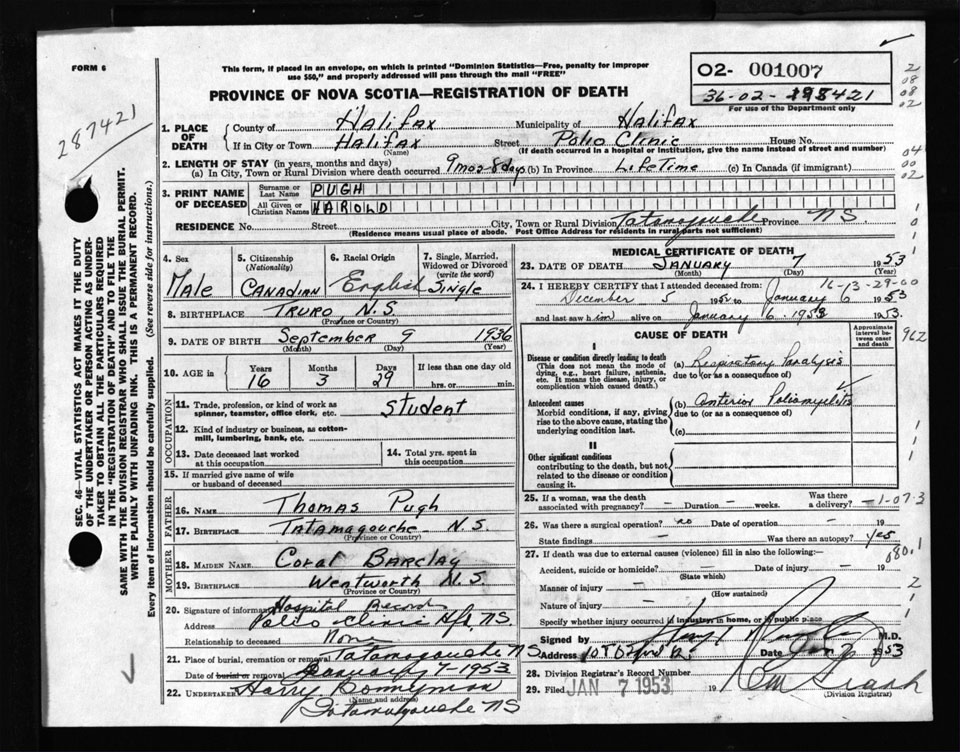 FORM 6
This form, if placed in an envelope, on which is printed "Dominion Statistics—Free, penalty for improper
use $50," and properly addressed will pass through the mail "FREE"
PROVINCE OF NOVA SCOTIA—REGISTRATION OF DEATH
O2- 001007
36-02-198421
For use of the Department only
287421
1. PLACE OF DEATH
County of Halifax Municipality of Halifax
If in City or Town Halifax (Name) Street Polio Clinic House No.
(If death occurred in a hospital or institution, give the name instead of street and number)
2. LENGTH OF STAY (in years, months and days)
(a) In City, Town or Rural Division where death occurred 9 mos-8 days (b) In Province LifeTime (c) In Canada (if immigrant)
3. PRINT NAME OF DECEASED
Surname or Last Name PUGH
All Given or Christian Names HAROLD
RESIDENCE No. Street City, Town or Rural Division Tatamagouche Province NS.
(Residence means usual place of abode. Post Office Address for residents in rural parts not sufficient)
4. Sex Male
5. Citizenship (Nationality) CANADIAN
6. Racial Origin English
7. Single, Married, Widowed or Divorced (write the word) Single
8. BIRTHPLACE TRURO N.S.
(Province or Country)
9. DATE OF BIRTH September 9 1936
(Month) (Day) (Year)
10. AGE in Years 16 Months 3 Days 29 If less than one day hrs. or min.
OCCUPATION
11. Trade, profession, or kind of work as spinner, teamster, office clerk, etc. Student
12. Kind of industry or business, as cotton-mill, lumbering, bank, etc.
13. Date deceased last worked at this occupation
14. Total yrs. spent in this occupation
15. If married give name of wife or husband of deceased
FATHER
16. NAME Thomas Pugh
17. BIRTHPLACE Tatamagouche N.S.
(Province or Country)
MOTHER
18. MAIDEN NAME Coral Barclay
19. BIRTHPLACE Wentworth N.S.
(Province or Country)
20. Signature of informant Hospital Record
Address Polio Clinic Hfx, NS.
Relationship to deceased None
21. Place of burial, cremation or removal Tatamagouche NS
Date of burial or removal January 7-1953
22. UNDERTAKER Harry Bonnyman
(Name and address)
Tatamagouche NS
MEDICAL CERTIFICATE OF DEATH
23. DATE OF DEATH JANUARY 7 1953
(Month) (Day) (Year)
16-13-29-00
24. I HEREBY CERTIFY that I attended deceased from:
December 5 1952 to January 6 1953
and last saw him alive on January 6 1953.
CAUSE OF DEATH
Approximate interval between onset and death
I
Disease or condition directly leading to death
(This does not mean the mode of dying, e.g., heart failure, asthenia, etc. It means the disease, injury, or complication which caused death.)
(a) Respiratory Paralysis
due to (or as a consequence of)
Antecedent causes
Morbid conditions, if any, giving rise to the above cause, stating the underlying condition last.
(b) Anterior Poliomyelitis
due to (or as a consequence of)
(c)
II
Other significant conditions
contributing to the death, but not related to the disease or condition causing it.
25. If a woman, was the death associated with pregnancy? – Duration – weeks. Was there a delivery? –
1-07.3
26. Was there a surgical operation? no Date of operation – 19
State findings – Was there an autopsy? Yes
27. If death was due to external causes (violence) fill in also the following:—
080.1
Accident, suicide or homicide? – Date of injury – 19
(State which)
Manner of injury –
(How sustained)
Nature of injury –
Specify whether injury occurred in industry, in home, or in public place
Signed by M.D.
Address Date Jan 7 1953
28. Division Registrar's Record Number
29. Filed JAN 7 1953 19
(Division Registrar)
SEC. 46—VITAL STATISTICS ACT MAKES IT THE DUTY
OF THE UNDERTAKER OR PERSON ACTING AS UNDER-
TAKER TO OBTAIN ALL THE PARTICULARS REQUIRED
IN THE "REGISTRATION OF DEATH" AND TO FILE THE
SAME WITH THE DIVISION REGISTRAR WHO SHALL ISSUE THE BURIAL PERMIT.
WRITE PLAINLY WITH UNFADING INK. THIS IS A PERMANENT RECORD.
Every item of information should be carefully supplied. (See reverse side for instructions.)